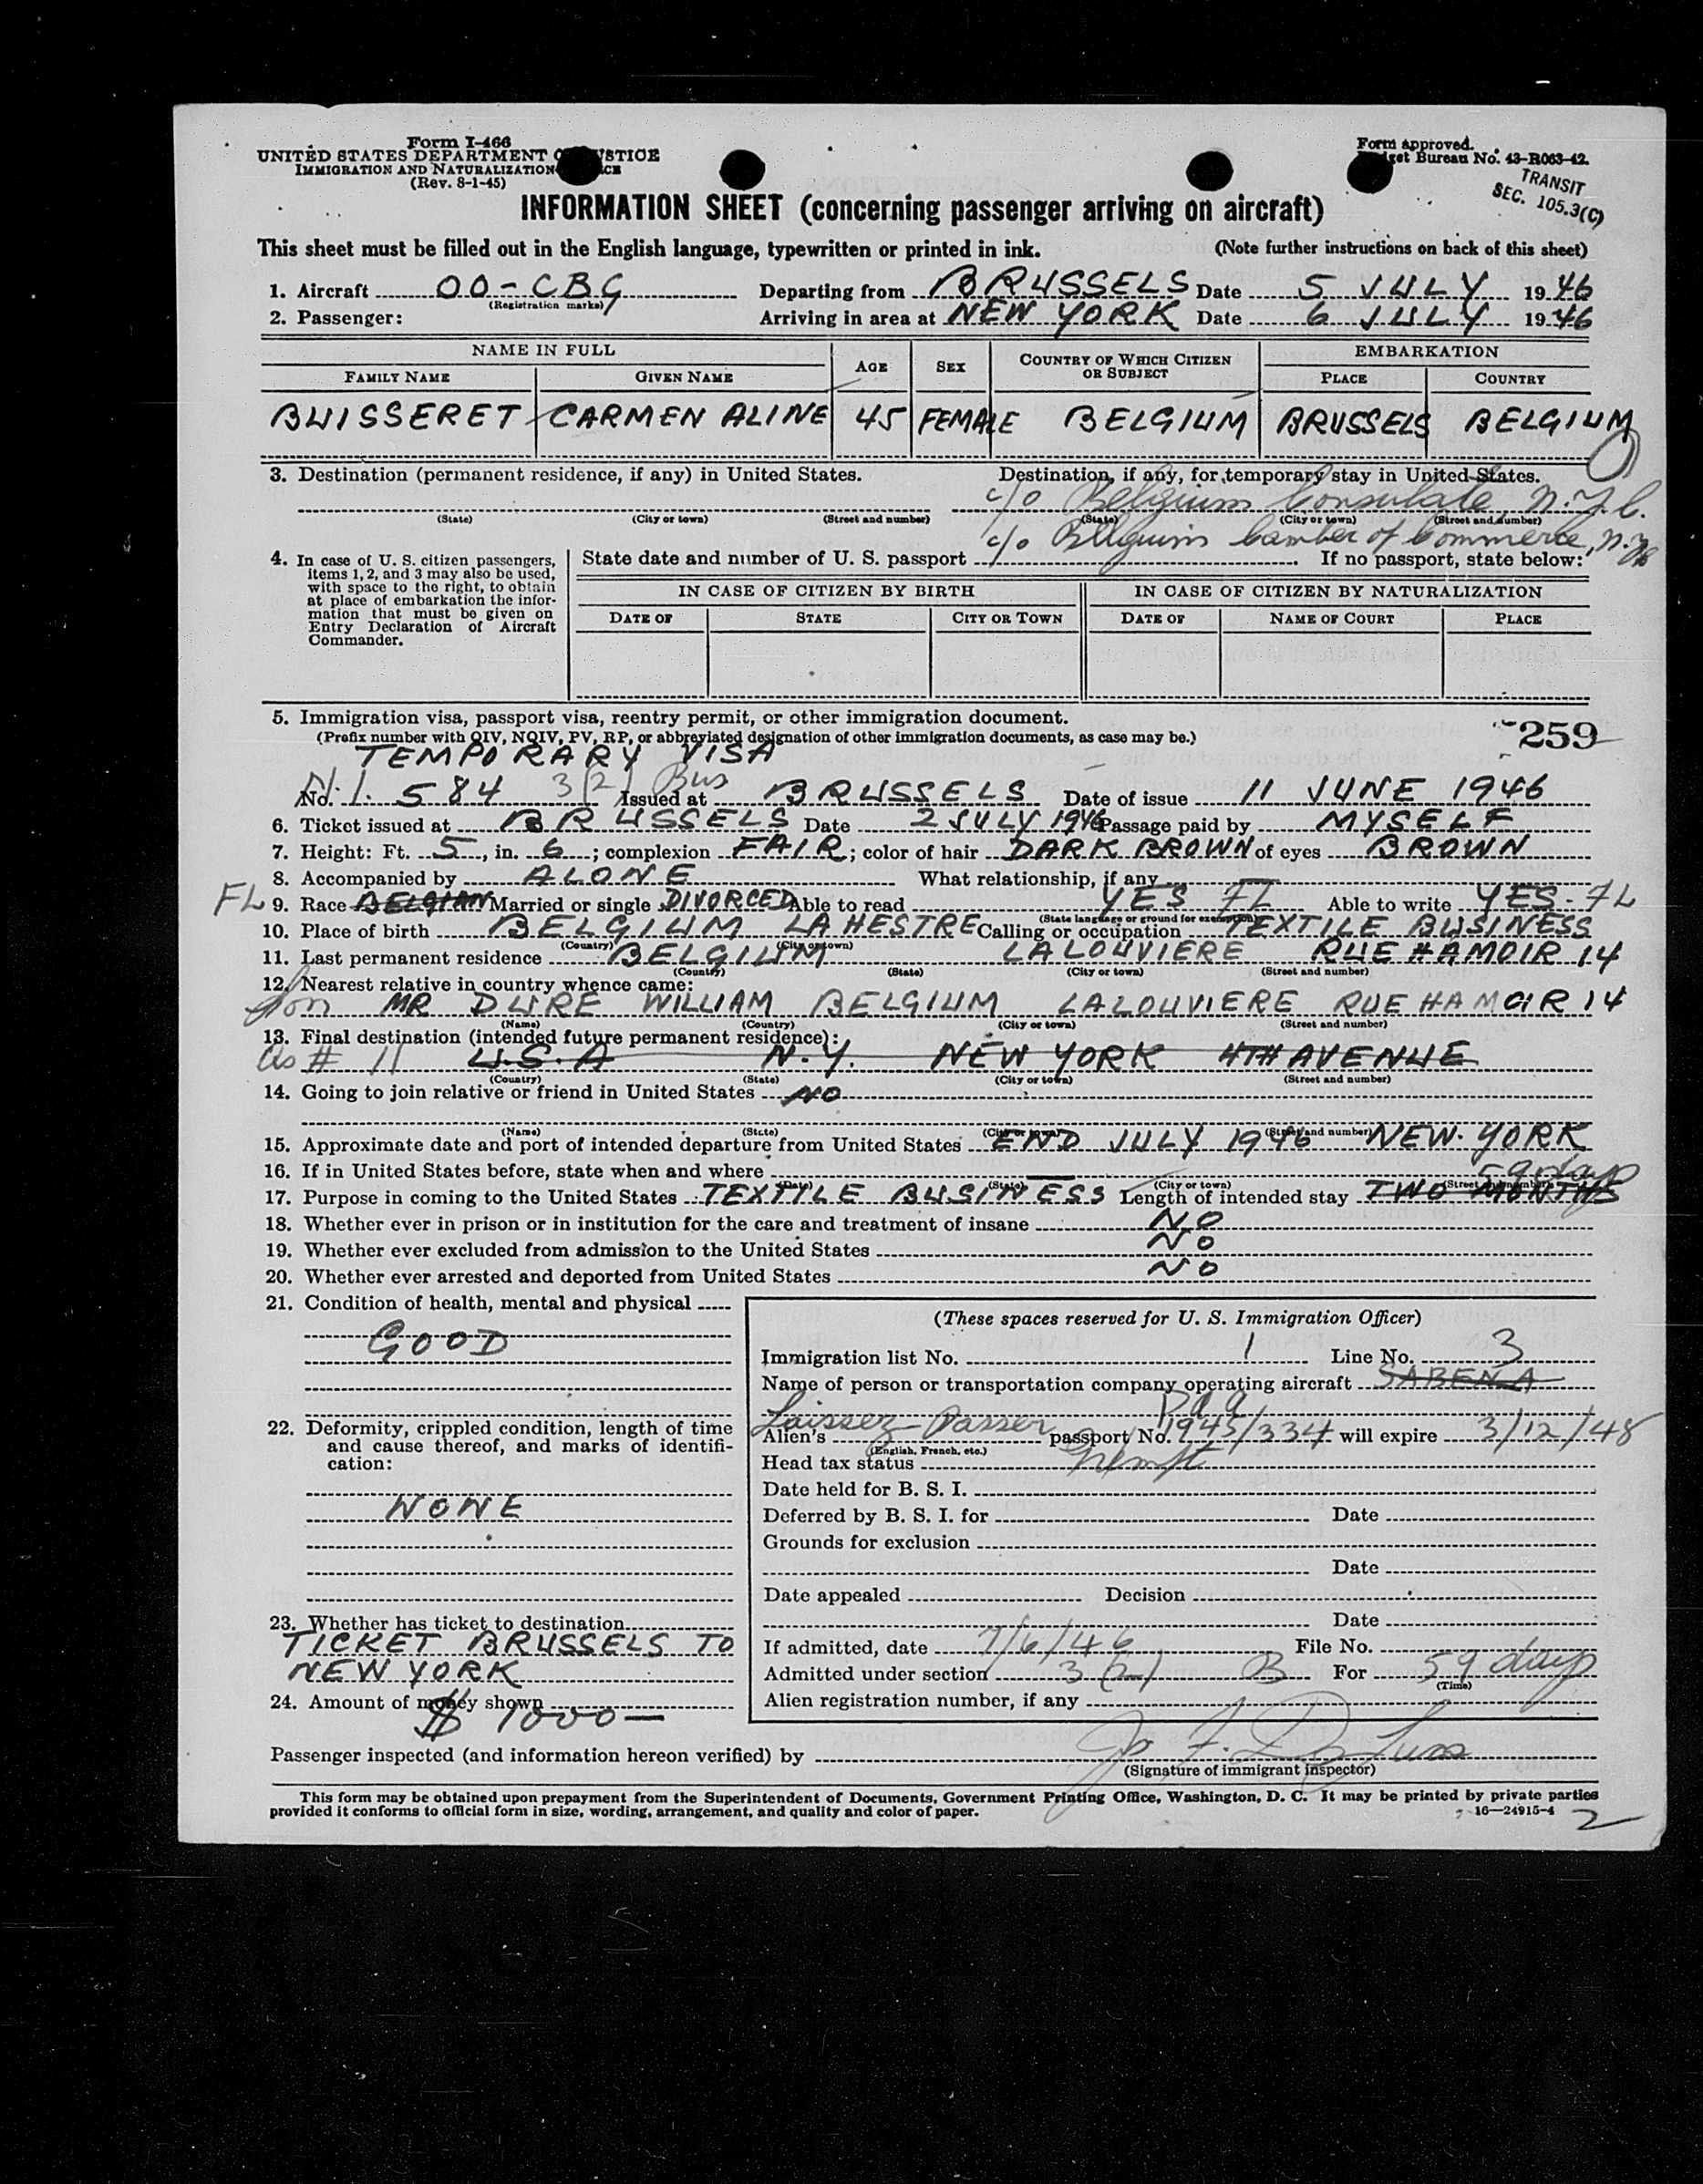 Form I-466
UNITED STATES DEPARTMENT STICE
IMMIGRATION AND NATURALIZATION ICE
(Rev. 8-1-45)
Form approved.
get Bureau No. 43-R063-42.
TRANSIT
SEC. 105.3(C)
INFORMATION SHEET (concerning passenger arriving on aircraft)
This sheet must be filled out in the English language, typewritten or printed in ink. (Note further instructions on back of this sheet)
1. Aircraft OO-CBG Departing from BRUSSELS Date 5 JULY 1946
(Registration marks)
2. Passenger: Arriving in area at NEW YORK Date 6 JULY 1946
NAME IN FULL AGE SEX COUNTRY OF WHICH CITIZEN OR SUBJECT EMBARKATION
FAMILY NAME GIVEN NAME PLACE COUNTRY
BUISSERET CARMEN ALINE 45 FEMALE BELGIUM BRUSSELS BELGIUM
3. Destination (permanent residence, if any) in United States. Destination, if any, for temporary stay in United States.
c/o Belgium Consulate, N.Y.C.
(State) (City or town) (Street and number) (State) (City or town) (Street and number)
c/o Belguim Camber of Commerce, N.Y.
4. In case of U. S. citizen passengers, items 1, 2, and 3 may also be used, with space to the right, to obtain at place of embarkation the information that must be given on Entry Declaration of Aircraft Commander.
State date and number of U. S. passport If no passport, state below:
IN CASE OF CITIZEN BY BIRTH IN CASE OF CITIZEN BY NATURALIZATION
DATE OF STATE CITY OR TOWN DATE OF NAME OF COURT PLACE
5. Immigration visa, passport visa, reentry permit, or other immigration document.
(Prefix number with QIV, NQIV, PV, RP, or abbreviated designation of other immigration documents, as case may be.)
259
TEMPORARY VISA
No. 584 3(2) Bus Issued at BRUSSELS Date of issue 11 JUNE 1946
6. Ticket issued at BRUSSELS Date 2 JULY 1946 Passage paid by MYSELF
7. Height: Ft. 5, in. 6; complexion FAIR; color of hair DARK BROWN of eyes BROWN
8. Accompanied by ALONE What relationship, if any
FL 9. Race BELGIAN Married or single DIVORCED Able to read YES FL Able to write YES - FL
(State language or ground for exemption)
10. Place of birth BELGIUM LA HESTRE Calling or occupation TEXTILE BUSINESS
(Country) (City or town)
11. Last permanent residence BELGIUM LALOUVIERE RUE HAMOIR 14
(Country) (State) (City or town) (Street and number)
12. Nearest relative in country whence came:
Son MR DURE WILLIAM BELGIUM LALOUVIERE RUE HAMOIR 14
(Name) (Country) (City or town) (Street and number)
13. Final destination (intended future permanent residence):
as # 11 U.S.A N.Y. NEW YORK 4TH AVENUE
(Country) (State) (City or town) (Street and number)
14. Going to join relative or friend in United States NO
(Name) (State) (City or town) (Street and number)
15. Approximate date and port of intended departure from United States END JULY 1946 NEW-YORK
16. If in United States before, state when and where —
59 days
(Date) (State) (City or town) (Street and number)
17. Purpose in coming to the United States TEXTILE BUSINESS Length of intended stay TWO MONTHS
18. Whether ever in prison or in institution for the care and treatment of insane NO
19. Whether ever excluded from admission to the United States NO
20. Whether ever arrested and deported from United States NO
21. Condition of health, mental and physical
GOOD
22. Deformity, crippled condition, length of time and cause thereof, and marks of identification:
NONE
23. Whether has ticket to destination
TICKET BRUSSELS TO
NEW YORK
24. Amount of money shown
$ 1000—
(These spaces reserved for U. S. Immigration Officer)
Immigration list No. 1 Line No. 3
Name of person or transportation company operating aircraft SABENA
P a a
Laissez-Passer
Alien's passport No. 1945/334 will expire 3/12/48
(English, French, etc.)
Head tax status
Date held for B. S. I.
Deferred by B. S. I. for Date
Grounds for exclusion
Date
Date appealed Decision
Date
If admitted, date 7/6/46 File No.
Admitted under section 3(2) B For 59 days
(Time)
Alien registration number, if any
Passenger inspected (and information hereon verified) by
(Signature of immigrant inspector)
This form may be obtained upon prepayment from the Superintendent of Documents, Government Printing Office, Washington, D. C. It may be printed by private parties
provided it conforms to official form in size, wording, arrangement, and quality and color of paper.
16—24915-4
2